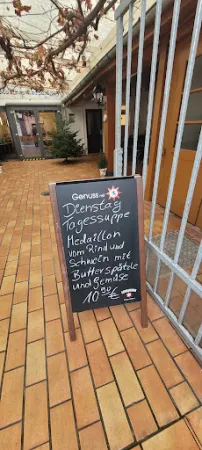 Genuss
Dienstag
Tagessuppe
Medaillon
vom Rind und
Schwein mit
Butterspätzle
und Gemüse
10 80 €